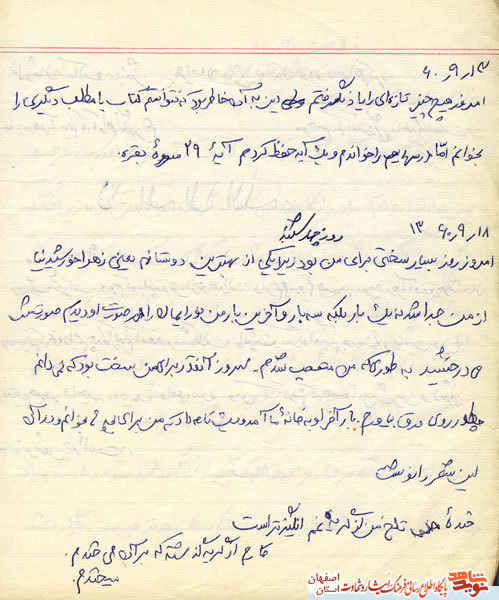 ۶۰/۹/۱۳
امروز هیچ چیز تازه‌ای را یاد نگرفتم ولی این به آن خاطر بود که نتوانستم کتاب یا مطلب دیگری را
بخوانم امّا درسهایم را خواندم و یک آیه حفظ کردم آیهٔ ۲۹ سورهٔ بقره.
۱۳۶۰/۹/۱۸ روز چهارشنبه
امروز روز بسیار سختی برای من بود زیرا یکی از بهترین دوستانم یعنی زهرا خورشیدنیا
از من جدا شد نه یک بار بلکه سه بار و آخرین بار من نور ایمان را در صورت او دیدم صورتش
می‌درخشید به طوری که من متعجب شدم. امروز آنقدر برای من سخت بود که نمی‌دانم
چطور روی ورق بیاورم. بار آخر او به خانهٔ ما آمد و یک نامه داد که من برای او
این شعر را نوشت
خندهٔ تلخ من از گریه غم انگیزتر است
کارم از گریه گذشته که بر آن می‌خندم.
میخندم.
شاهد
نوید
پایگاه اطلاع رسانی فرهنگ ایثار و شهادت استان اصفهان